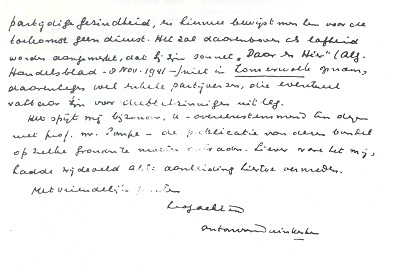 partijdige gezindheid, en hiermee bewijst men hem voor de
toekomst geen dienst. Het zal daarenboven als lafheid
worden aangemerkt, dat hij zijn sonnet „Daar en Hier" (Alg.
Handelsblad - 8 Nov. 1941 - ) niet in Zomerwolk opnam,
daarentegen wel enkele partijverzen, die eventueel
vatbaar zijn voor dubbelzinnige uitleg.
Het spijt mij bijzonder, u - overeenstemmend
met prof. mr. Pompe - de publicatie van dezen bundel
op zulke gronden te moeten ontraden. Liever ware het mij,
hadde Wijdeveld alle aanleiding hiertoe vermeden.
Met vriendelijke groeten
hoogachtend
Anton van Duinkerken